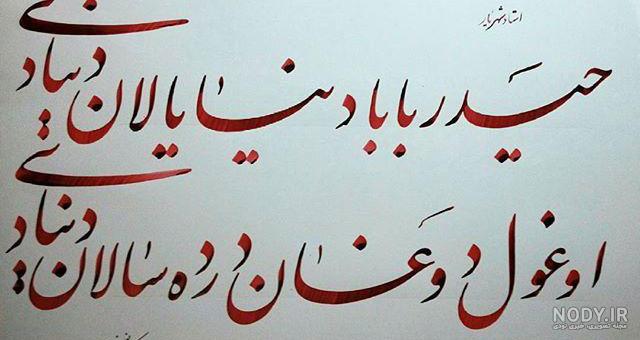 استاد شهریار
حیدربابا دنیا یالان دنیادی
اوغول دوغان درده سالان دنیادی
NODY.IR
مجله تصویری، خبری نودی